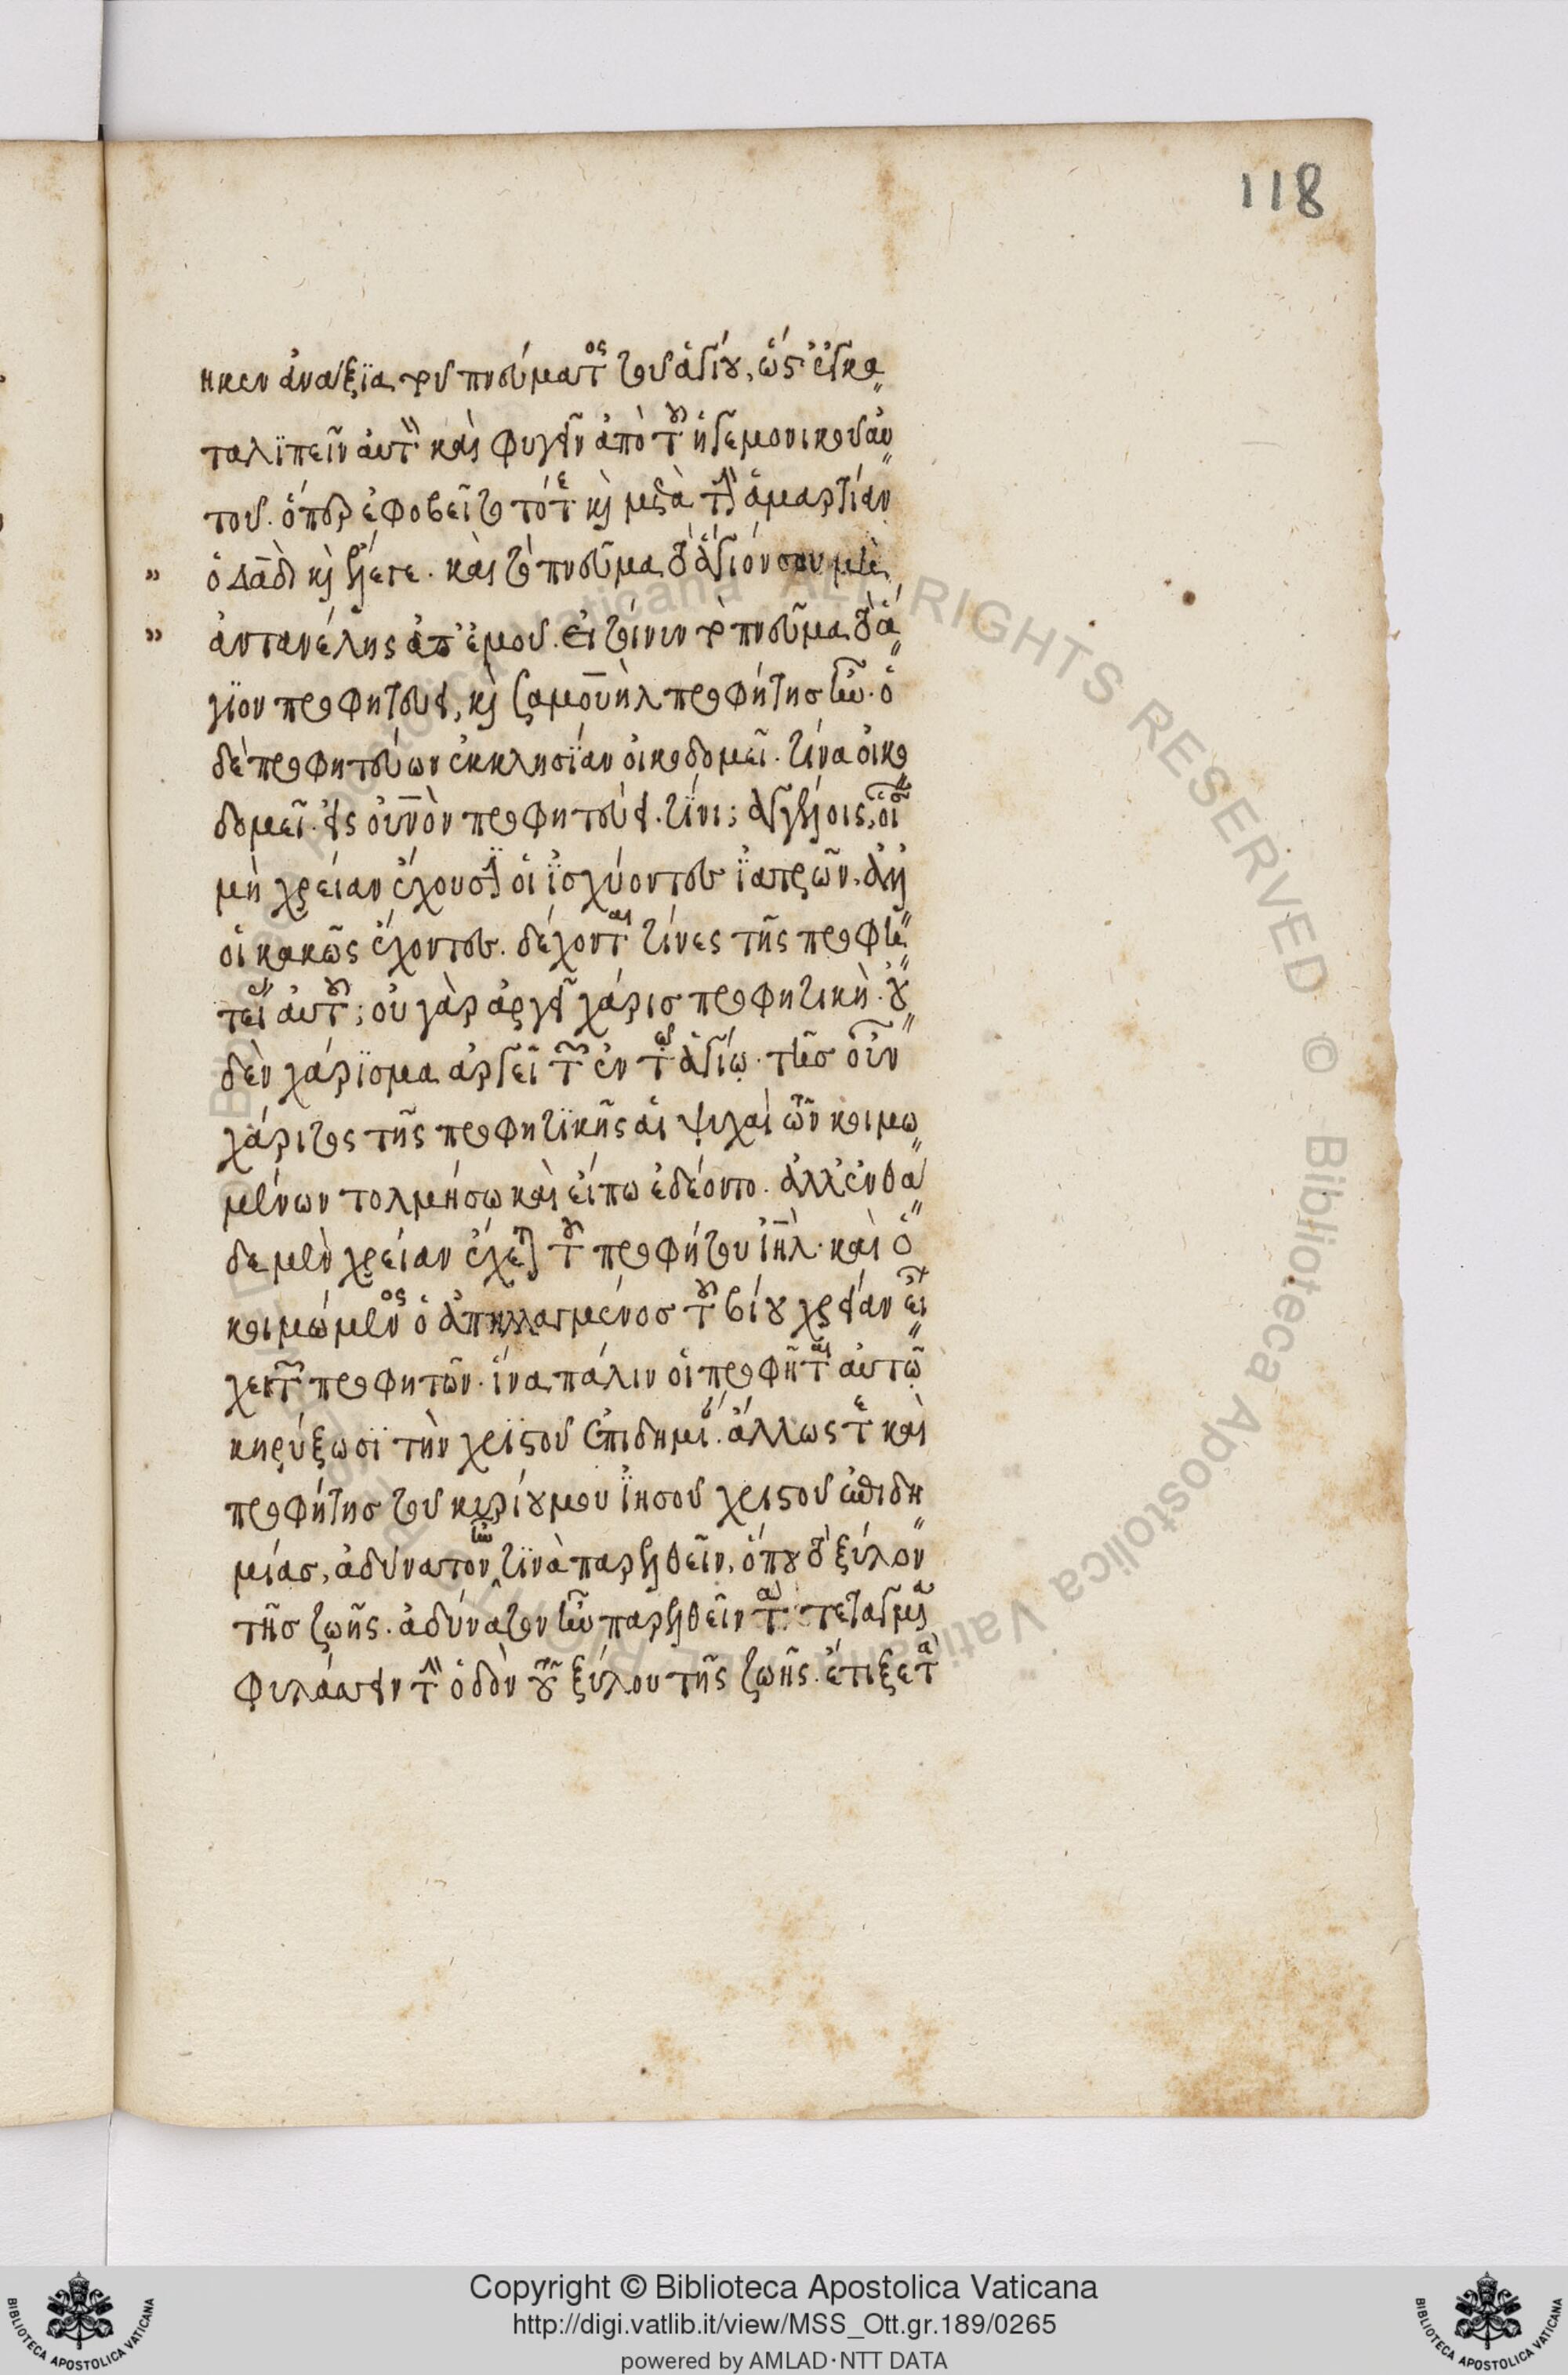 118
ηκεν ἀνάξια τοῦ πνεύματος τοῦ ἁγίου, ὥστ' ἐγκα
ταλϊπεῖν αὐτὸν καὶ φυγεῖν ἀπὸ τοῦ ἡγεμονικοῦ αὐ
τοῦ. ὅπερ ἐφοβεῖτο τότε καὶ μετὰ τὴν ἁμαρτίαν
" ὁ δᾱδ καὶ ἔλεγε. καὶ τὸ πνεῦμα τὸ ἅγιόν σου μὴ
" ἀντανέλης ἀπ' ἐμοῦ. εἰ τοίνυν τὸ πνεῦμα τὸ ἅ
γϊον προφητεύει, καὶ σαμουὴλ προφήτης ἦν. ὁ
δὲ προφητεύων ἐκκλησίαν οἰκοδομεῖ. τίνα οἰκο
δομεῖ. εἰς οὐν̄ὸν προφητεύει. τίνι; ἀγγέλοις, οἳ
μὴ χρείαν ἔχουσιν οἱ ἰσχύοντες ἰατρῶν, ἀλλ'
οἱ κακῶς ἔχοντες. δέχονται τίνες τῆς προφη
τείας αὐτοῦ; οὐ γὰρ ἀργεῖ χάρισ προφητικὴ. οὐ
δὲν χάρϊσμα ἀργεῖ τῶν ἐν τοῖς ἁγίῳ. τῆσ οὖν
χάριτος τῆς προφητϊκῆς αἱ ψυχαὶ τῶν κοιμω
μένων τολμήσω καὶ εἴπω ἐδέοντο. ἀλλ' ἐνθά
δε μὲν χρείαν ἔχει τοῦ προφήτου ιη̄λ. καὶ ὁ
κοιμώμενος ὁ ἀπηλλαγμένοσ τοῦ βίου χρείαν εἶ
χε τῶν προφητῶν. ἵνα πάλιν οἱ προφῆται αὐτῷ
κηρύξωσϊ τὴν χριστοῦ ἐπιδημίαν. ἄλλως τε καὶ
προφήτησ τοῦ κυρίου μου ἰησοῦ χριστοῦ ἐπιδη
μίασ, ἀδύνατον ἦν τϊνὰ παρελθεῖν, ὅπου τὸ ξύλον
τῆσ ζωῆς. ἀδύνατον ἦν παρελθεῖν τὰ τεταγμένα
φυλάσσειν τὴν ὁδὸν τοῦ ξύλου τῆς ζωῆς.
Copyright © Biblioteca Apostolica Vaticana
http://digi.vatlib.it/view/MSS_Ott.gr.189/0265
powered by AMLAD·NTT DATA